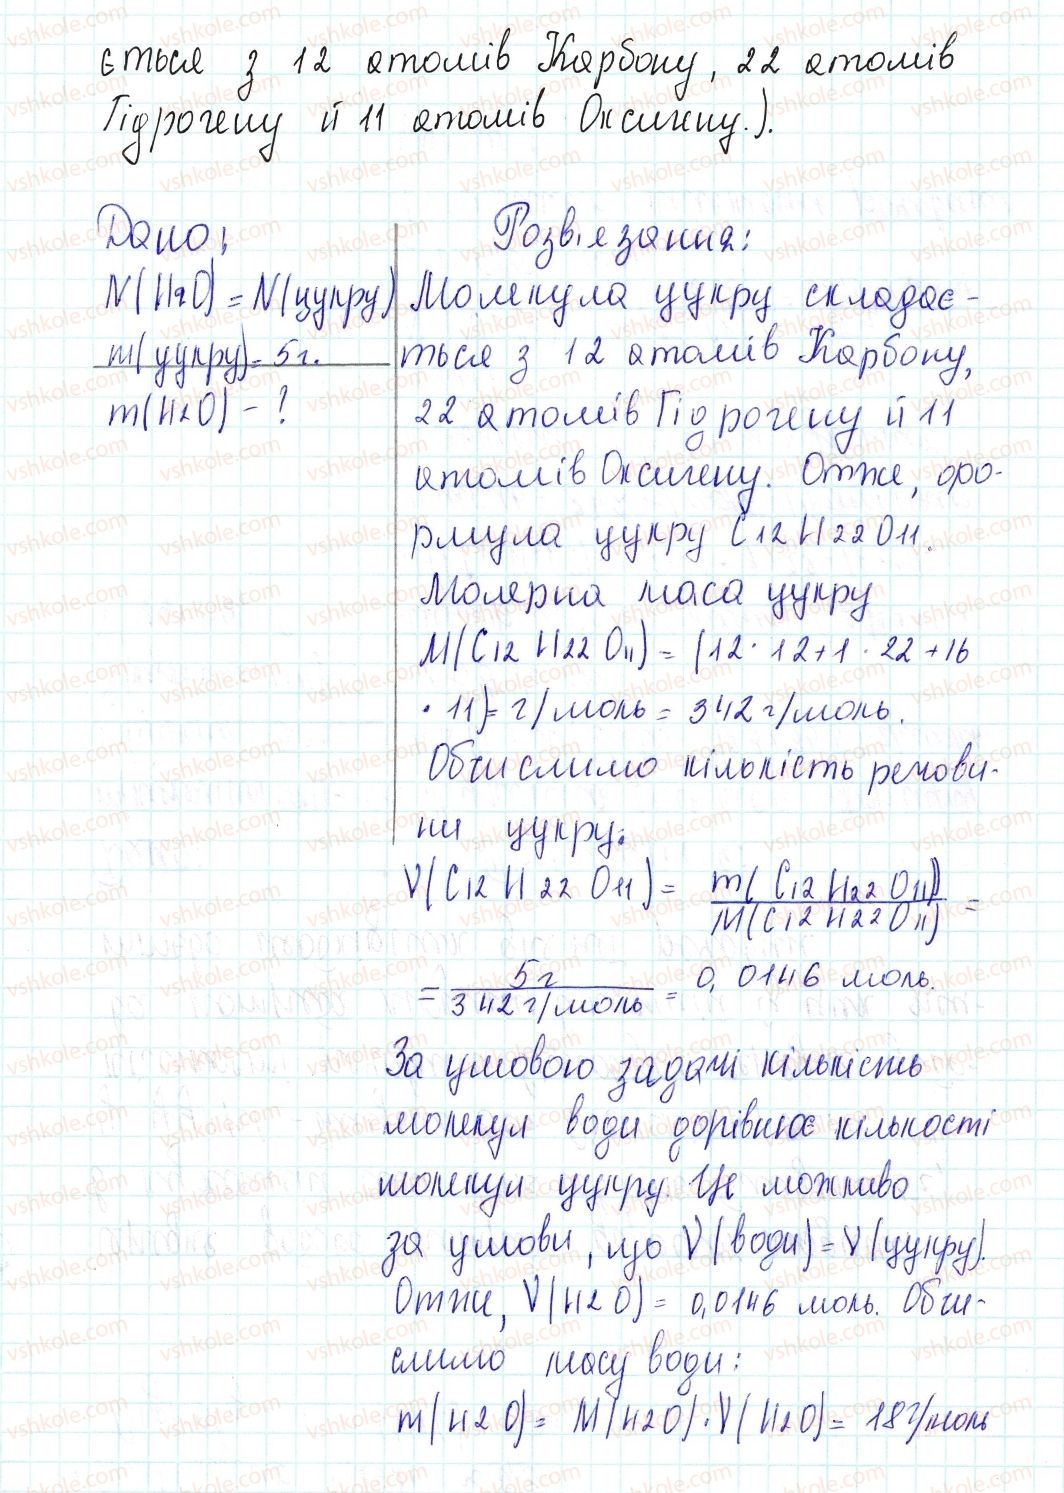 ється з 12 атомів Карбону, 22 атомів
Гідрогену й 11 атомів Оксигену.).
Дано:
N(H2O) = N(цукру)
m(цукру) = 5г.
m(H2O) - ?
Розв'язання:
Молекула цукру складає-
ться з 12 атомів Карбону,
22 атомів Гідрогену й 11
атомів Оксигену. Отже, фо-
рмула цукру C12H22O11.
Молярна маса цукру
M(C12H22O11) = (12 · 12 + 1 · 22 + 16
· 11) = г/моль = 342 г/моль.
Обчислимо кількість речови-
ни цукру:
V(C12H22O11) = m(C12H22O11) / M(C12H22O11) =
= 5г / 342 г/моль = 0,0146 моль.
За умовою задачі кількість
молекул води дорівнює кількості
молекул цукру. Це можливо
за умови, що V(води) = V(цукру).
Отже, V(H2O) = 0,0146 моль. Обчи-
слимо масу води:
m(H2O) = M(H2O) · V(H2O) = 18 г/моль